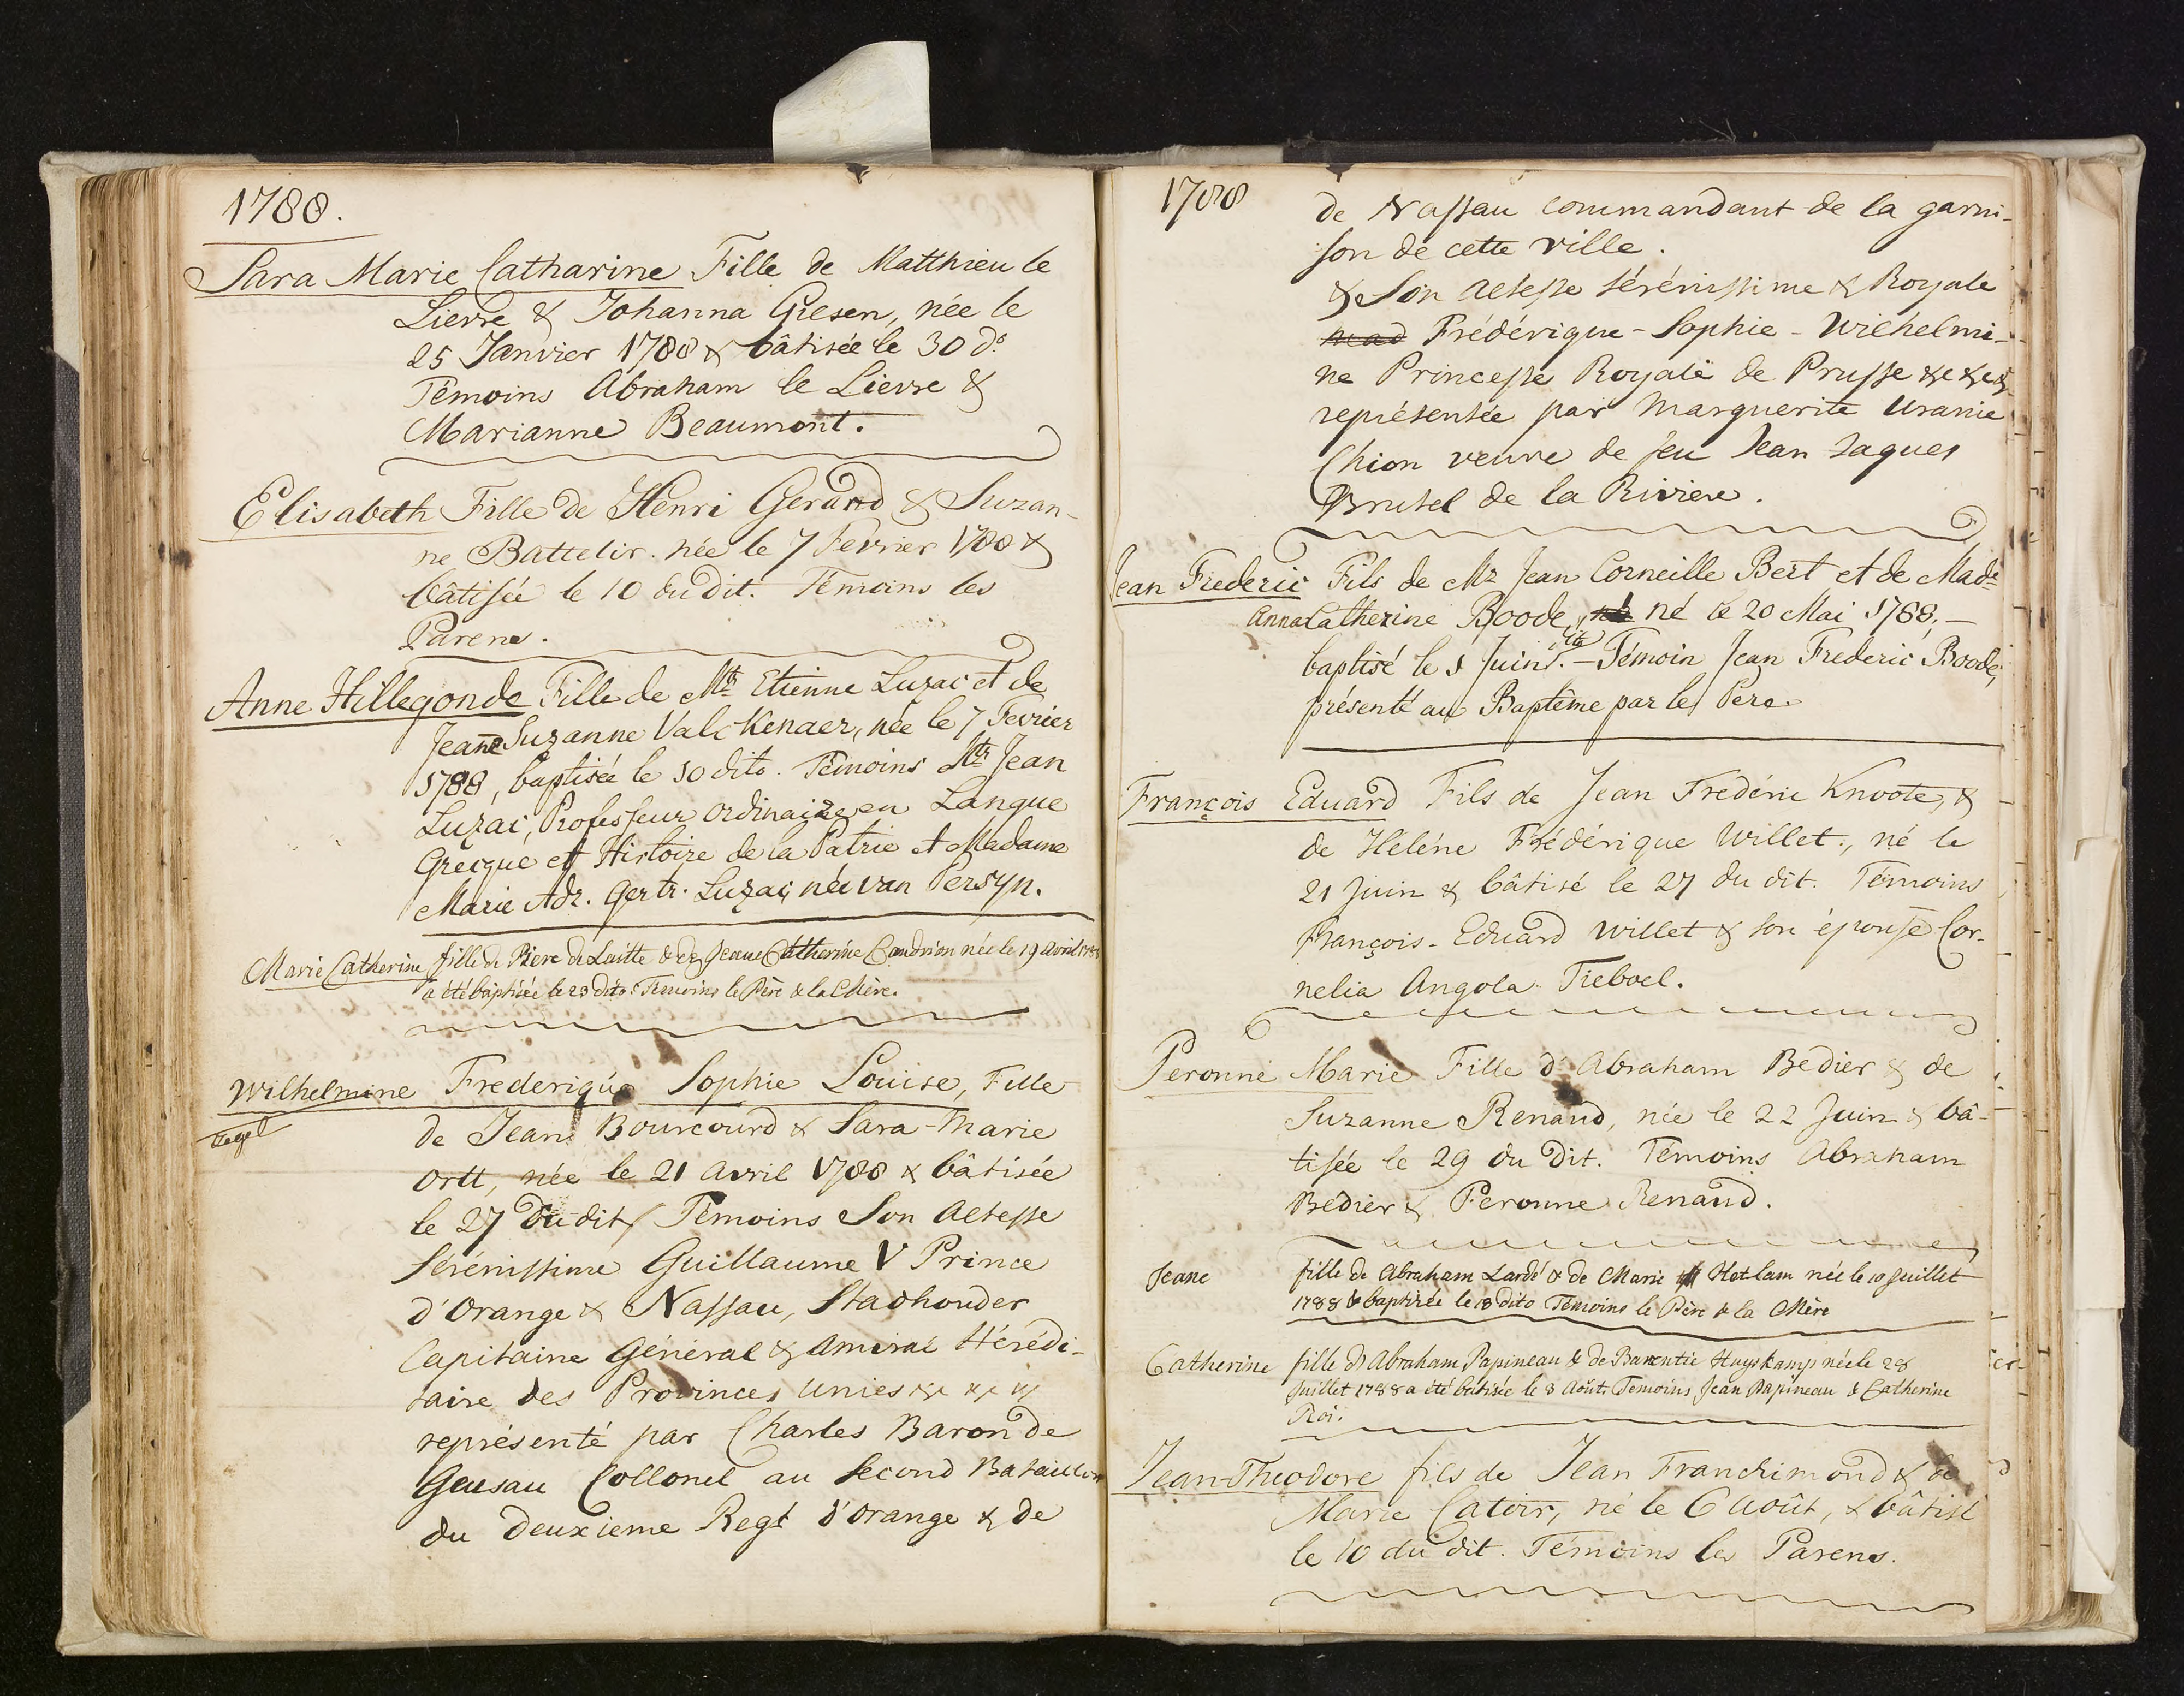 1788.
Sara Marie Catharine Fille de Matthieu le
Lievre & Johanna Giesen, née le
25 Janvier 1788 & bâtisée le 30 d.º
Témoins Abraham le Lievre &
Marianne Beaumont.
Elisabeth Fille de Henri Gerard & Suzan-
ne Battelir. née le 7 Fevrier 1788 &
bâtisée le 10 du dit. Témoins les
Parens.
Anne Hillegonde Fille de Mtr Etienne Luzac et de
Jeanne Suzanne Valckenaer, née le 7 Fevrier
1788, baptisée le 10 dito. Témoins Mtr Jean
Luzac, Professeur ordinaire en Langue
Grecque et Histoire de la Patrie et Madame
Marie Adr. Gertr. Luzac, née van Persyn.
Marie Catherine fille de Piere de Laitte & de Jeane Catherine Coudrion née le 19 Avril 1788
a été baptisée le 23 dito. Temoins le Père & la Mère.
Wilhelmine Frederique Sophie Louise, Fille
Zegel
de Jean Bourcourd & Sara-Marie
Ortt, née le 21 Avril 1788 & bâtisée
le 27 du dit. Témoins Son Altesse
Sérénissime Guillaume V Prince
d'Orange & Nassau, Stadhouder
Capitaine Général & Amiral Hérédi-
taire des Provinces Unies &c &c &c
représenté par Charles Baron de
Geusau Collonel au Second Bataillon
du Deuxieme Regt d'Orange & de
1788
de Nassau commandant de la garni-
son de cette ville.
& Son Altesse Sérénissime & Royale
mad Frédérique-Sophie-Wilhelmi-
ne Princesse Royale de Prusse &c &c &
représentée par Marguerite Uranie
Chion veuve de feu Jean Jaques
Brutel de la Riviere.
Jean Frederic Fils de Mr Jean Corneille Bert et de Made
Anna Catherine Boode, né le 20 Mai 1788,-
baptisé le 1 Juin dito.- Témoin Jean Frederic Boode,
présenté au Baptême par le Pere.
François Eduard Fils de Jean Frédéric Knoote, &
de Heléne Frédérique Willet., né le
21 Juin & bâtisé le 27 du dit. Témoins
François-Eduard Willet & son épouse Cor-
nelia Angola Tieboel.
Peronne Marie Fille d'Abraham Bedier & de
Suzanne Renaud, née le 22 Juin & bâ-
tisée le 29 du dit. Témoins Abraham
Bedier & Peronne Renaud.
Jeane fille de Abraham Lardé & de Marie Hetlam née le 10 Juillet
1788 & baptisée le 13 dito Témoins le Père & la Mère
Catherine fille d'Abraham Papineau & de Barentie Huyskamp née le 28
Juillet 1788 a été batisée le 3 Août. Temoins Jean Papineau & Catherine
Roi.
Jean-Theodore fils de Jean Franchimond & de
Marie Catoir, né le 6 Août, & bâtisé
le 10 du dit. Témoins les Parens.